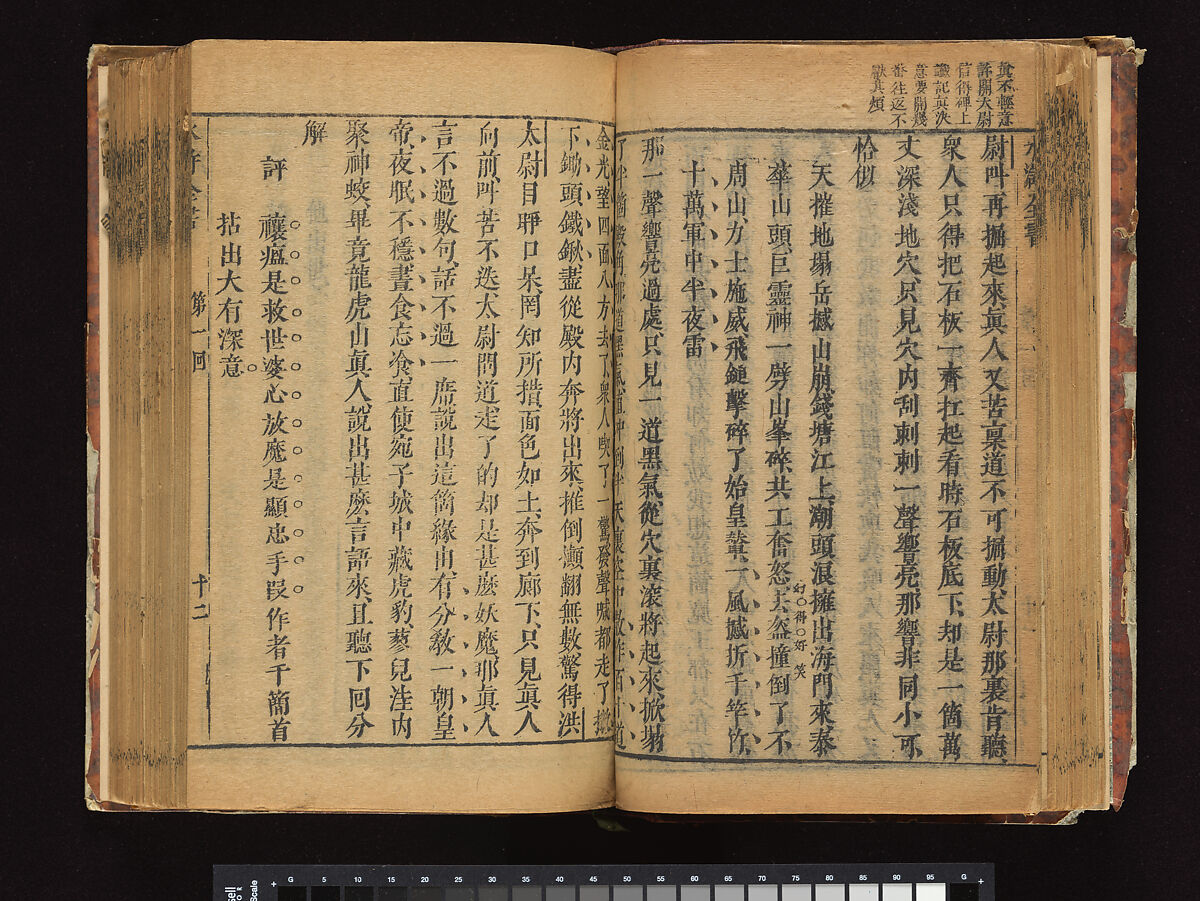 真不輕意
許開大尉
信得碑上
讖記真決
意要開幾
番往返不
厭其煩
水滸全書
尉叫再掘起來真人又苦稟道不可掘動太尉那裏肯聽
衆人只得把石板一齊扛起看時石板底下却是一箇萬
丈深淺地穴只見穴内刮剌剌一聲響亮那響非同小可
恰似
天摧地塌岳撼山崩錢塘江上潮頭浪擁出海門來泰
華山頭巨靈神一劈山峯碎共工奮怒去盔撞倒了不
好得好笑
周山力士施威飛鎚擊碎了始皇輦一風撼折千竿竹
十萬軍中半夜雷
那一聲響亮過處只見一道黑氣從穴裏滾將起來掀塌
了半箇殿角那道黑氣直冲到半天裏空中散作百十道
金光望四面八方去了衆人喫了一驚發聲喊都走了撇
下鋤頭鐵鍬盡從殿内奔將出來推倒攧翻無數驚得洪
太尉目睜口呆罔知所措面色如土奔到廊下只見真人
向前叫苦不迭太尉問道走了的却是甚麽妖魔那真人
言不過數句話不過一席說出這箇緣由有分教一朝皇
帝夜眠不穩晝食忘飡直使宛子城中藏虎豹蓼兒洼内
聚神蛟畢竟龍虎山真人說出甚麽言語來且聽下回分
解
評
禳瘟是救世婆心放魔是顯忠手段作者千箇首
拈出大有深意
第一回
十二
G 5 10 15 20 25 30 35 40 45 50 55 60 65 70 75 80 85 90 95 G